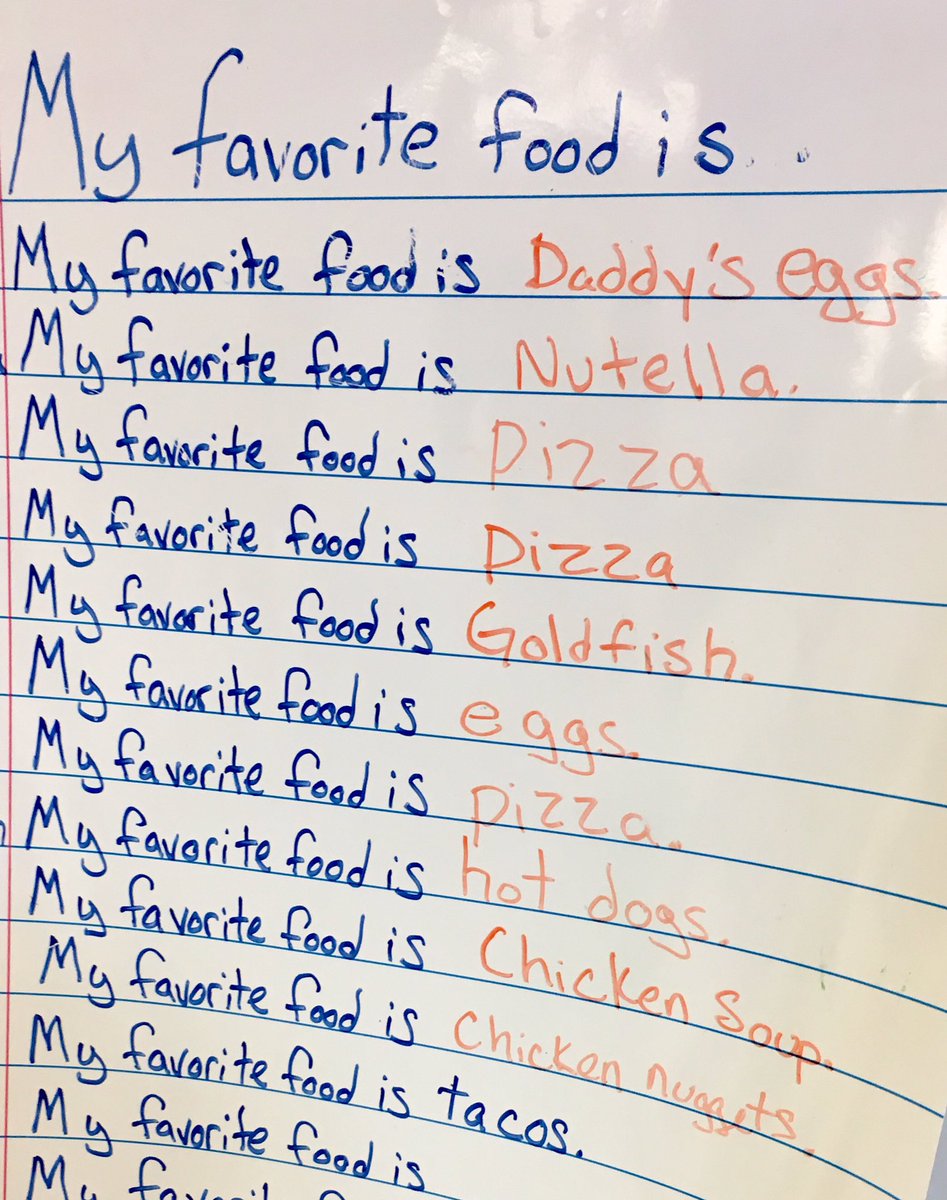 My favorite food is...
My favorite food is Daddy's eggs.
My favorite food is Nutella.
My favorite food is Pizza
My favorite food is Pizza
My favorite food is Goldfish.
My favorite food is eggs.
My favorite food is pizza.
My favorite food is hot dogs.
My favorite food is Chicken Soup.
My favorite food is Chicken nuggets.
My favorite food is tacos.
My favorite food is
My